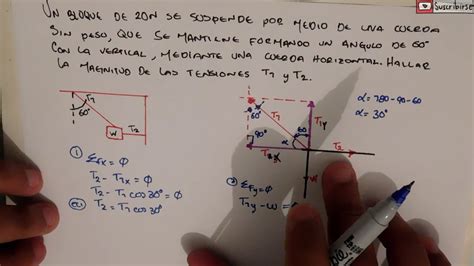 Suscribirse
UN BLOQUE DE 20N SE SUSPENDE POR MEDIO DE UNA CUERDA
SIN PESO, QUE SE MANTIENE FORMANDO UN ANGULO DE 60°
CON LA VERTICAL, MEDIANTE UNA CUERDA HORIZONTAL. HALLAR
LA MAGNITUD DE LAS TENSIONES T1 Y T2.
60°
T1
W
T2
60°
T1
T1y
60
90°
α
T2
T1x
W
α = 180 - 90 - 60
α = 30°
① Σfx = Ø
T2 - T1x = Ø
T2 - T1 cos 30° = Ø
T2 = T1 cos 30°
② Σfy = Ø
T1y - W =